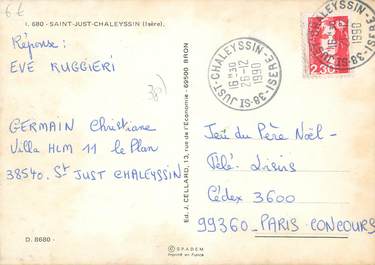 6€
I. 680 - SAINT-JUST-CHALEYSSIN (Isère).
Réponse :
EVE RUGGIERI
GERMAIN Christiane
Villa HLM 11 le Plan
38540. St JUST CHALEYSSIN
D. 8680 -
Ed. J. CELLARD, 13, rue de l'Economie - 69500 BRON
© SPADEM
Imprimé en France
ST JUST-CHALEYSSIN - 38-ISERE
16 H 30
26-12
1990
2,30
ST JUST-CHALEYSSIN - 38-ISERE
1990
Jeu du Père Noël -
Télé Loisirs
Cédex 3600
99360 - PARIS-CONCOURS